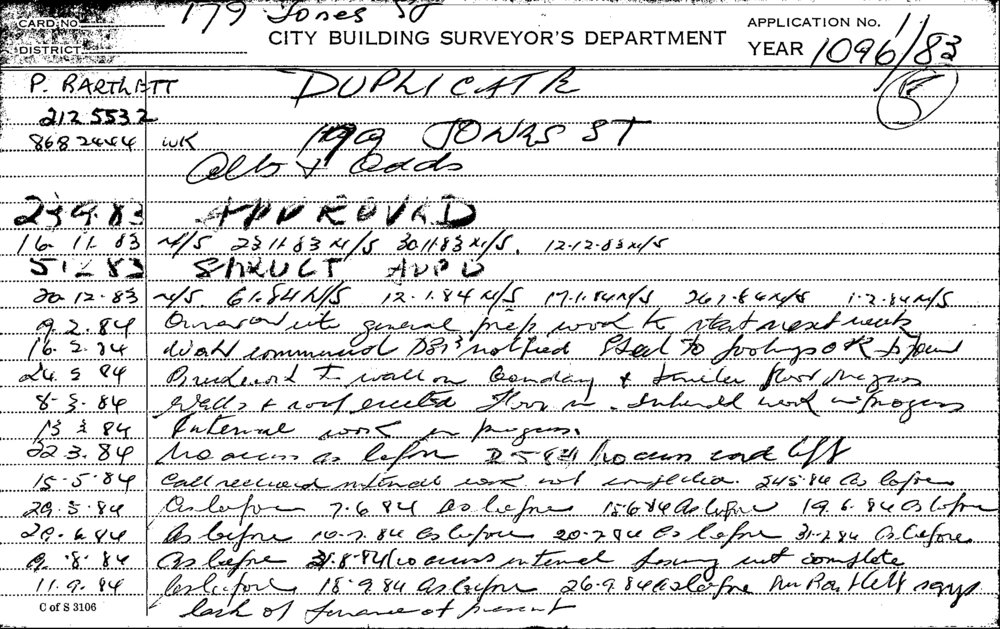 179 Jones St
CARD No.
DISTRICT
CITY BUILDING SURVEYOR'S DEPARTMENT
APPLICATION No.
YEAR 1096/83
P. BARTLETT DUPLICATE 5
212 5532
868 2444 WK 179 JONES ST
Alts & Adds
23 9. 83 APPROVED
16. 11. 83 N/S 23 11 83 N/S 30.11.83 N/S. 12.12.83 N/S
5.12 83 STRUCT APPD
20.12.83 N/S 6.1.84 N/S 12.1.84 N/S 17.1.84 N/S 26.1.84 N/S 1.2.84 N/S
9.2.84 Owner on site general prep work to start next week
16.2.84 Work commenced notified Steel to footings OK to pour
24.2 84 Brickwork to wall on boundary & floor
8.3.84 Walls & roof erected floor in. Internal work in progress
13 3 84 Internal work in progress.
22.3.84 No access as before 2 5 84 No access card left
15.5.84 Call received internal work not completed. 24 5 84 As before
29.5.84 As before 7.6.84 As before 15 6 84 As before 19.6.84 As before
29.6.84 As before 10.7.84 As before 20.7.84 As before 31.7.84 As before
9.8.84 As before 31.8.84 No access internal not complete
11.9.84 As before 18.9.84 As before 26.9.84 As before Mr Bartlett says
C of S 3106 lack of finance at present